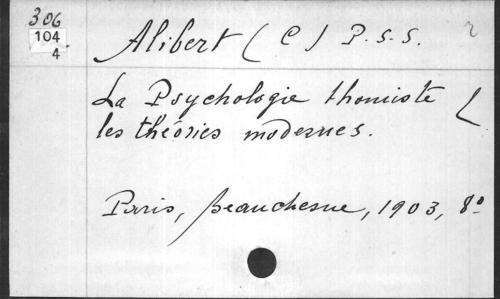 306
104
4
Alibert ( C ) P.S.S.
La Psychologie thomiste (
les théories modernes.
Paris, Beauchesne, 1903, 8º